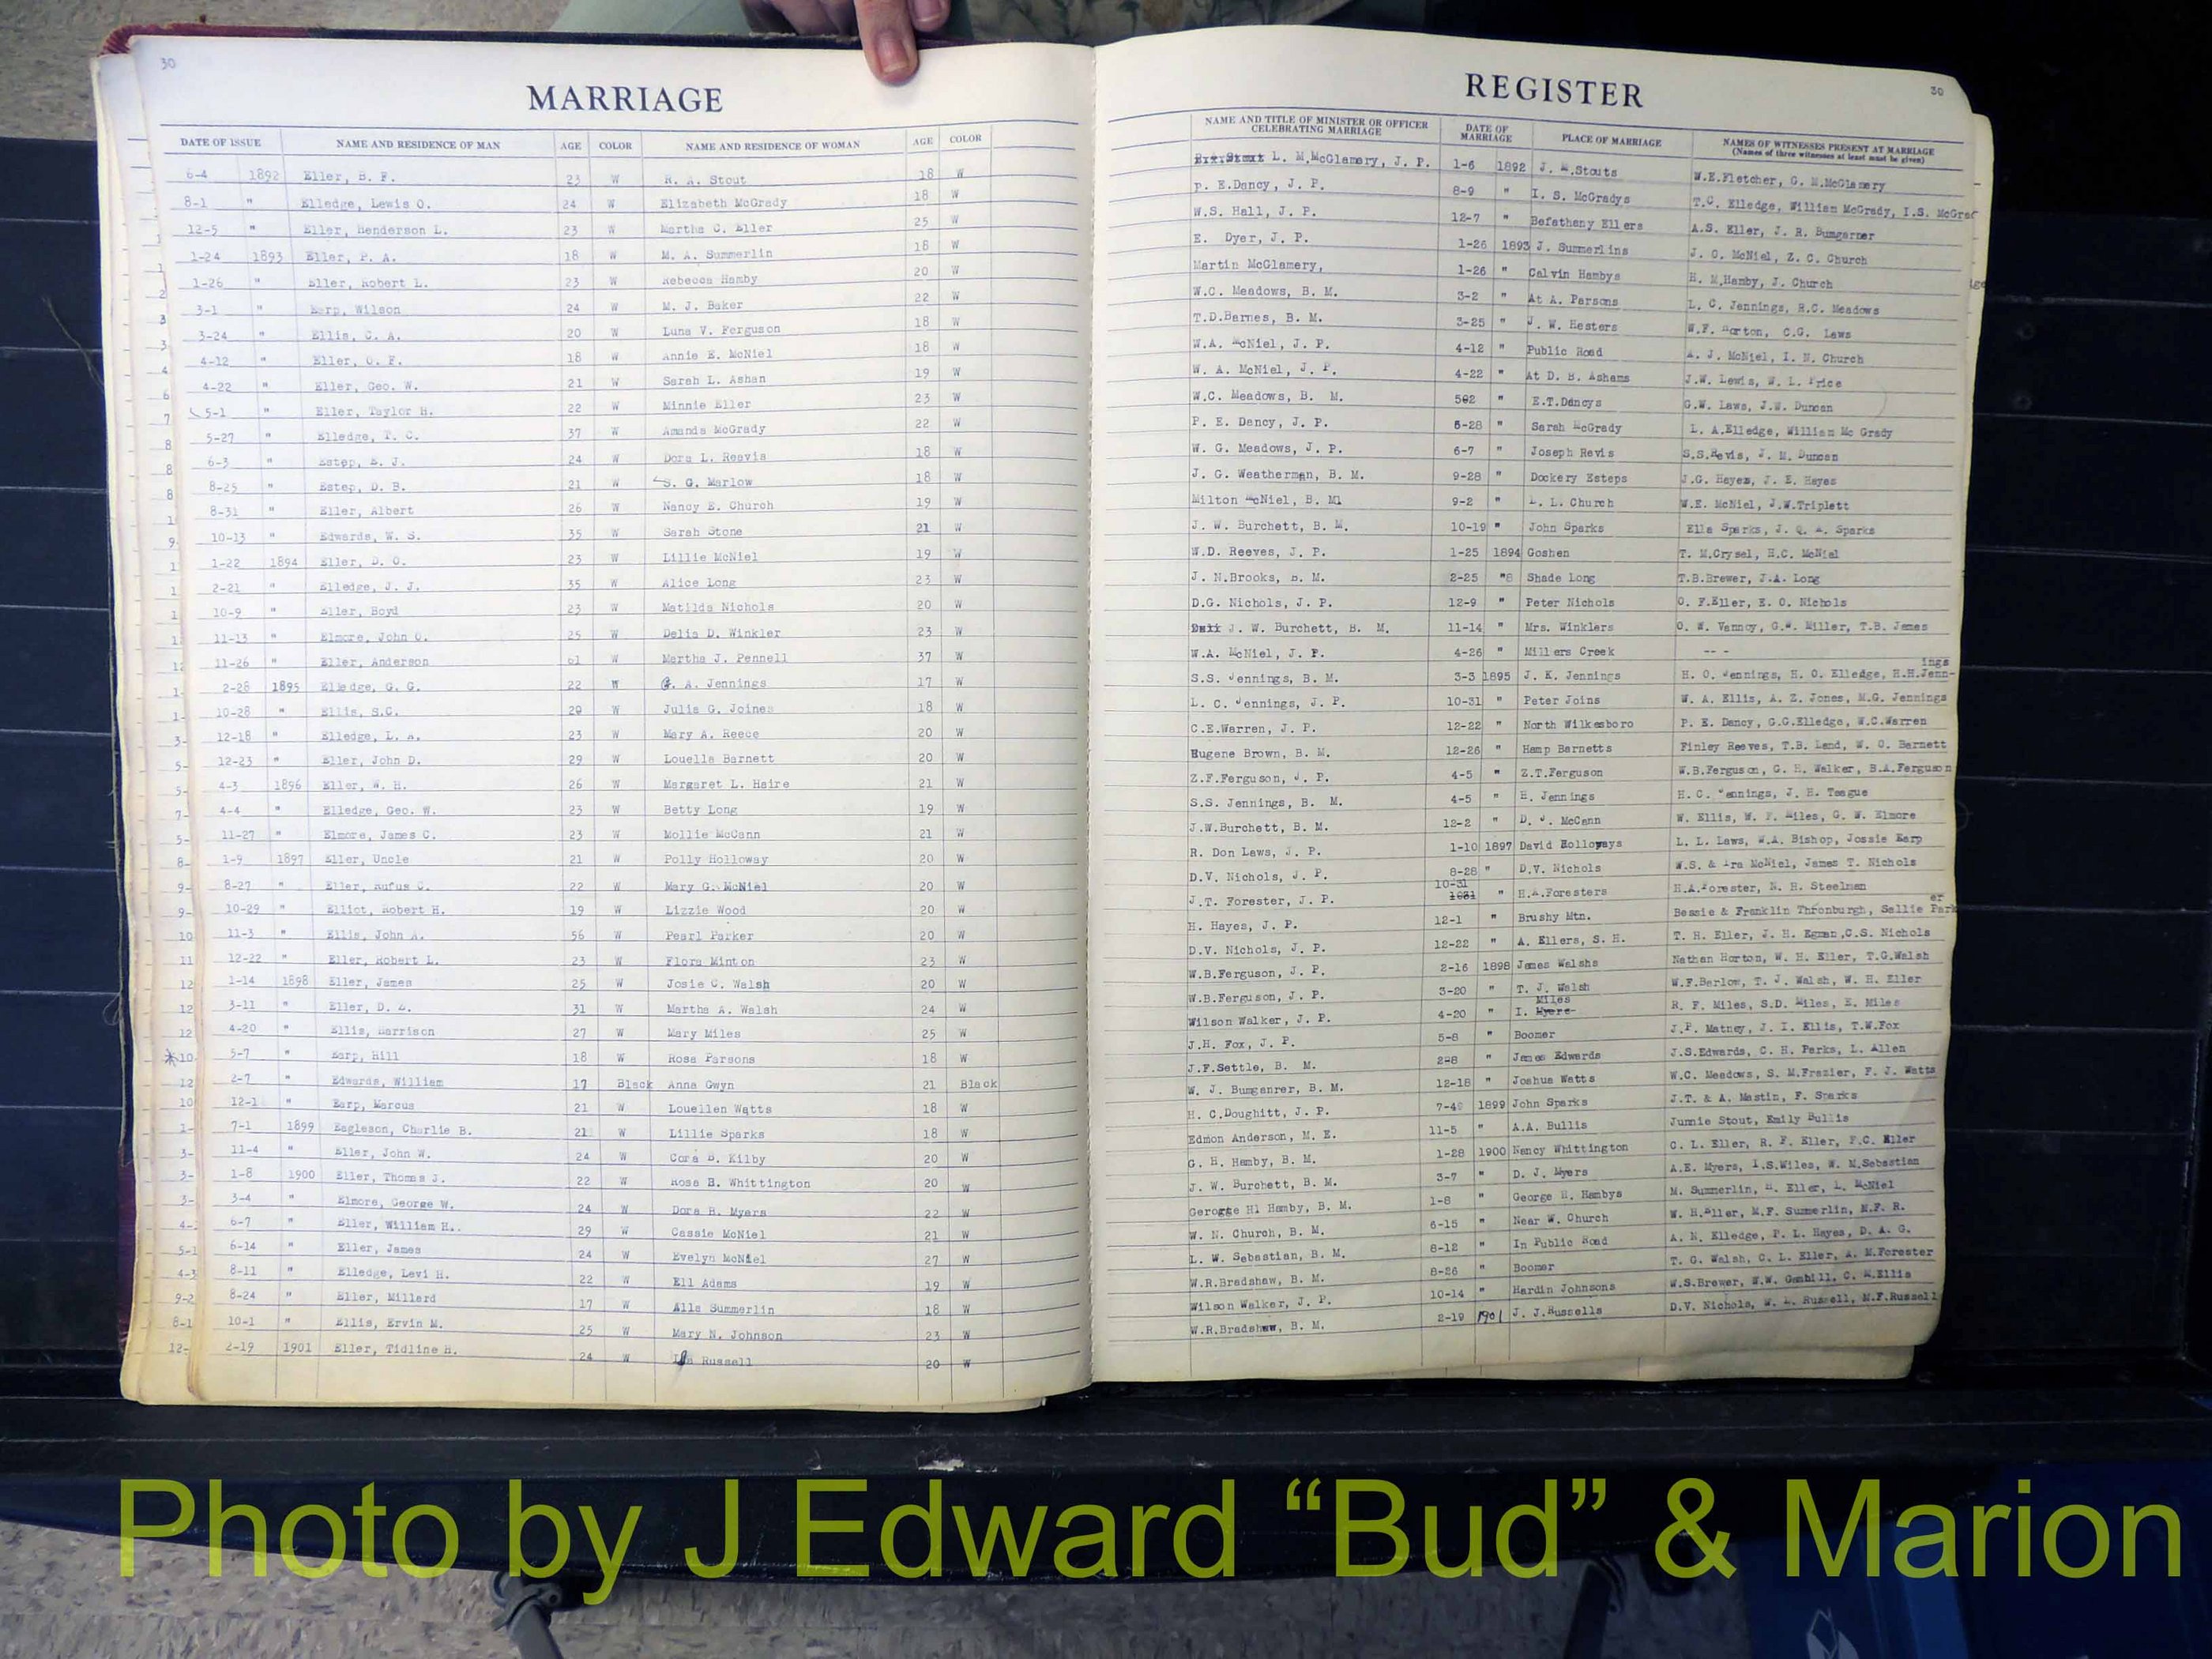 30
MARRIAGE
DATE OF ISSUE NAME AND RESIDENCE OF MAN AGE COLOR NAME AND RESIDENCE OF WOMAN AGE COLOR
6-4 1892 Eller, B. F. 23 W R. A. Stout 18 W
8-1 " Elledge, Lewis O. 24 W Elizabeth McGrady 18 W
12-5 " Eller, Henderson L. 23 W Martha C. Eller 25 W
1-24 1893 Eller, P. A. 18 W M. A. Summerlin 18 W
1-26 " Eller, Robert L. 23 W Rebecca Hamby 20 W
3-1 " Earp, Wilson 24 W M. J. Baker 22 W
3-24 " Ellis, C. A. 20 W Luna V. Ferguson 18 W
4-12 " Eller, O. F. 18 W Annie E. McNiel 18 W
4-22 " Eller, Geo. W. 21 W Sarah L. Ashan 19 W
5-1 " Eller, Taylor H. 22 W Minnie Eller 23 W
5-27 " Elledge, T. C. 37 W Amanda McGrady 22 W
6-3 " Estep, E. J. 24 W Dora L. Reavis 18 W
8-25 " Estep, D. B. 21 W S. G. Marlow 18 W
8-31 " Eller, Albert 26 W Nancy E. Church 19 W
10-13 " Edwards, W. S. 35 W Sarah Stone 21 W
1-22 1894 Eller, D. O. 23 W Lillie McNiel 19 W
2-21 " Elledge, J. J. 35 W Alice Long 23 W
10-9 " Eller, Boyd 23 W Matilda Nichols 20 W
11-13 " Elmore, John O. 25 W Delia D. Winkler 23 W
11-26 " Eller, Anderson 61 W Martha J. Pennell 37 W
2-28 1895 Elledge, G. G. 22 W A. Jennings 17 W
10-28 " Ellis, S.C. 20 W Julia G. Joines 18 W
12-18 " Elledge, L. A. 23 W Mary A. Reece 20 W
12-23 " Eller, John D. 29 W Louella Barnett 20 W
4-3 1896 Eller, W. H. 26 W Margaret L. Haire 21 W
4-4 " Elledge, Geo. W. 23 W Betty Long 19 W
11-27 " Elmore, James C. 23 W Mollie McCann 21 W
1-9 1897 Eller, Uncle 21 W Polly Holloway 20 W
8-27 " Eller, Rufus C. 22 W Mary G. McNiel 20 W
10-29 " Elliot, Robert H. 19 W Lizzie Wood 20 W
11-3 " Ellis, John A. 56 W Pearl Parker 20 W
12-22 " Eller, Robert L. 23 W Flora Minton 23 W
1-14 1898 Eller, James 25 W Josie C. Walsh 20 W
3-11 " Eller, D. 31 W Martha A. Walsh 24 W
4-20 " Ellis, Harrison 27 W Mary Miles 25 W
5-7 " Earp, Hill 18 W Rosa Parsons 18 W
2-7 " Edwards, William 17 Black Anna Gwyn 21 Black
12-1 " Earp, Marcus 21 W Louellen Watts 18 W
7-1 1899 Eagleson, Charlie B. 21 W Lillie Sparks 18 W
11-4 " Eller, John W. 24 W Cora B. Kilby 20 W
1-8 1900 Eller, Thomas J. 22 W Rosa B. Whittington 20 W
3-4 " Elmore, George W. 24 W Dora B. Myers 22 W
6-7 " Eller, William H.. 29 W Cassie McNiel 21 W
6-14 " Eller, James 24 W Evelyn McNiel 27 W
8-11 " Elledge, Levi H. 22 W Ell Adams 19 W
8-24 " Eller, Millard 17 W Alla Summerlin 18 W
10-1 " Ellis, Ervin M. 25 W Mary N. Johnson 23 W
2-19 1901 Eller, Tidline H. 24 W Russell 20 W
REGISTER
30
NAME AND TITLE OF MINISTER OR OFFICER CELEBRATING MARRIAGE DATE OF MARRIAGE PLACE OF MARRIAGE NAMES OF WITNESSES PRESENT AT MARRIAGE
(Names of three witnesses at least must be given)
L. M.McGlamery, J. P. 1-6 1892 J. W.Stouts W.E.Fletcher, G. M.McGlamery
P. E.Dancy, J. P. 8-9 " I. S. McGradys T.C. Elledge, William McGrady, I.S. McGrad
W.S. Hall, J. P. 12-7 " Befathany Ellers A.S. Eller, J. R. Bumgarner
E. Dyer, J. P. 1-26 1893 J. Summerlins J. O. McNiel, Z. C. Church
Martin McGlamery, 1-26 " Calvin Hambys H. M.Hamby, J. Church
W.C. Meadows, B. M. 3-2 " At A. Parsons L. C. Jennings, R.C. Meadows
T.D.Barnes, B. M. 3-25 " J. W. Hesters W.F. Horton, C.G. Laws
W.A. McNiel, J. P. 4-12 " Public Road A. J. McNiel, I. N. Church
W. A. McNiel, J. P. 4-22 " At D. B. Ashams J.W. Lewis, W. L. Price
W.C. Meadows, B. M. 502 " E.T.Dancys G.W. Laws, J.W. Duncan
P. E. Dancy, J. P. 5-28 " Sarah McGrady L. A.Elledge, William Mc Grady
W. G. Meadows, J. P. 6-7 " Joseph Revis S.S.Revis, J. M. Duncan
J. G. Weatherman, B. M. 9-28 " Dockery Esteps J.G. Hayes, J. E. Hayes
Milton McNiel, B. M1 9-2 " L. L. Church W.E. McNiel, J.W.Triplett
J. W. Burchett, B. M. 10-19 " John Sparks Ella Sparks, J. Q. A. Sparks
W.D. Reeves, J. P. 1-25 1894 Goshen T. M.Crysel, H.C. McNiel
J. N.Brooks, B. M. 2-25 "8 Shade Long T.B.Brewer, J.A. Long
D.G. Nichols, J. P. 12-9 " Peter Nichols O. F.Eller, E. O. Nichols
J. W. Burchett, B. M. 11-14 " Mrs. Winklers O. W. Vannoy, G.W. Miller, T.B. James
W.A. McNiel, J. P. 4-26 " Millers Creek -- -
ings
S.S. Jennings, B. M. 3-3 1895 J. K. Jennings H. O. Jennings, H. O. Elledge, H.H.Jenn-
L. C. Jennings, J. P. 10-31 " Peter Joins W. A. Ellis, A. Z. Jones, M.G. Jennings
C.E.Warren, J. P. 12-22 " North Wilkesboro P. E. Dancy, G.G.Elledge, W.C.Warren
Eugene Brown, B. M. 12-26 " Hamp Barnetts Finley Reeves, T.B. Land, W. O. Barnett
Z.F.Ferguson, J. P. 4-5 " Z.T.Ferguson W.B.Ferguson, G. H. Walker, B.A.Ferguson
S.S. Jennings, B. M. 4-5 " E. Jennings H. C. Jennings, J. H. Teague
J.W.Burchett, B. M. 12-2 " D. J. McCann W. Ellis, W. F. Miles, G. W. Elmore
R. Don Laws, J. P. 1-10 1897 David Holloways L. L. Laws, W.A. Bishop, Jossie Earp
D.V. Nichols, J. P. 8-28 " D.V. Nichols W.S. & Ira McNiel, James T. Nichols
10-31
J.T. Forester, J. P. 1031 " H.A.Foresters H.A.Forester, N. H. Steelman
er
H. Hayes, J. P. 12-1 " Brushy Mtn. Bessie & Franklin Thronburgh, Sallie Park
D.V. Nichols, J. P. 12-22 " A. Ellers, S. H. T. H. Eller, J. H. Egman,C.S. Nichols
W.B.Ferguson, J. P. 2-16 1898 James Walshs Nathan Horton, W. H. Eller, T.G.Walsh
W.B.Ferguson, J. P. 3-20 " T. J. Walsh W.F.Barlow, T. J. Walsh, W. H. Eller
Miles
Wilson Walker, J. P. 4-20 " I. Myers R. F. Miles, S.D. Miles, E. Miles
J.H. Fox, J. P. 5-8 " Boomer J.P. Matney, J. I. Ellis, T.W.Fox
J.F.Settle, B. M. 2-8 " James Edwards J.S.Edwards, C. H. Parks, L. Allen
W. J. Bumganrer, B. M. 12-18 " Joshua Watts W.C. Meadows, S. M.Frazier, F. J. Watts
H. C.Doughitt, J. P. 7-4 1899 John Sparks J.T. & A. Mastin, F. Sparks
Edmon Anderson, M. E. 11-5 " A.A. Bullis Junnie Stout, Emily Bullis
G. H. Hamby, B. M. 1-28 1900 Nancy Whittington C. L. Eller, R. F. Eller, F.C. Eller
J. W. Burchett, B. M. 3-7 " D. J. Myers A.E. Myers, I.S.Wiles, W. M.Sebastian
Gerogge H1 Hamby, B. M. 1-8 " George H. Hambys M. Summerlin, H. Eller, L. McNiel
W. N. Church, B. M. 6-15 " Near W. Church W. H.Eller, M.F. Summerlin, M.F. R.
L. W. Sebastian, B. M. 8-12 " In Public Road A. N. Elledge, P. L. Hayes, D. A. G.
W.R.Bradshaw, B. M. 8-26 " Boomer T. G. Walsh, C. L. Eller, A. M.Forester
Wilson Walker, J. P. 10-14 " Hardin Johnsons W.S.Brewer, W.W. Gambill, C. M.Ellis
W.R.Bradshaw, B. M. 2-19 1901 J. J.Russells D.V. Nichols, W. L. Russell, M.F.Russell
Photo by J Edward “Bud” & Marion